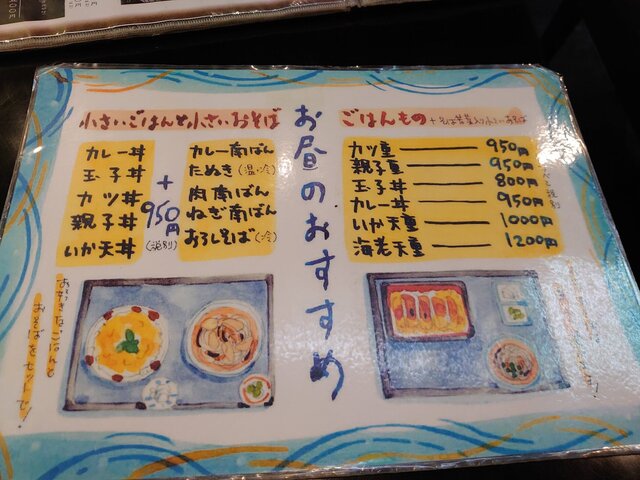 お昼のおすすめ
小さいごはんと小さいおそば
カレー丼
玉子丼
カツ丼
親子丼
いか天丼
+
950円
(税別)
カレー南ばん
たぬき(温・冷)
肉南ばん
ねぎ南ばん
おろしそば(冷)
お好きなごはんと
おそばをセットで!
ごはんもの
カツ重 950円
親子重 950円
玉子丼 800円
カレー丼 950円
いか天重 1000円
海老天重 1200円